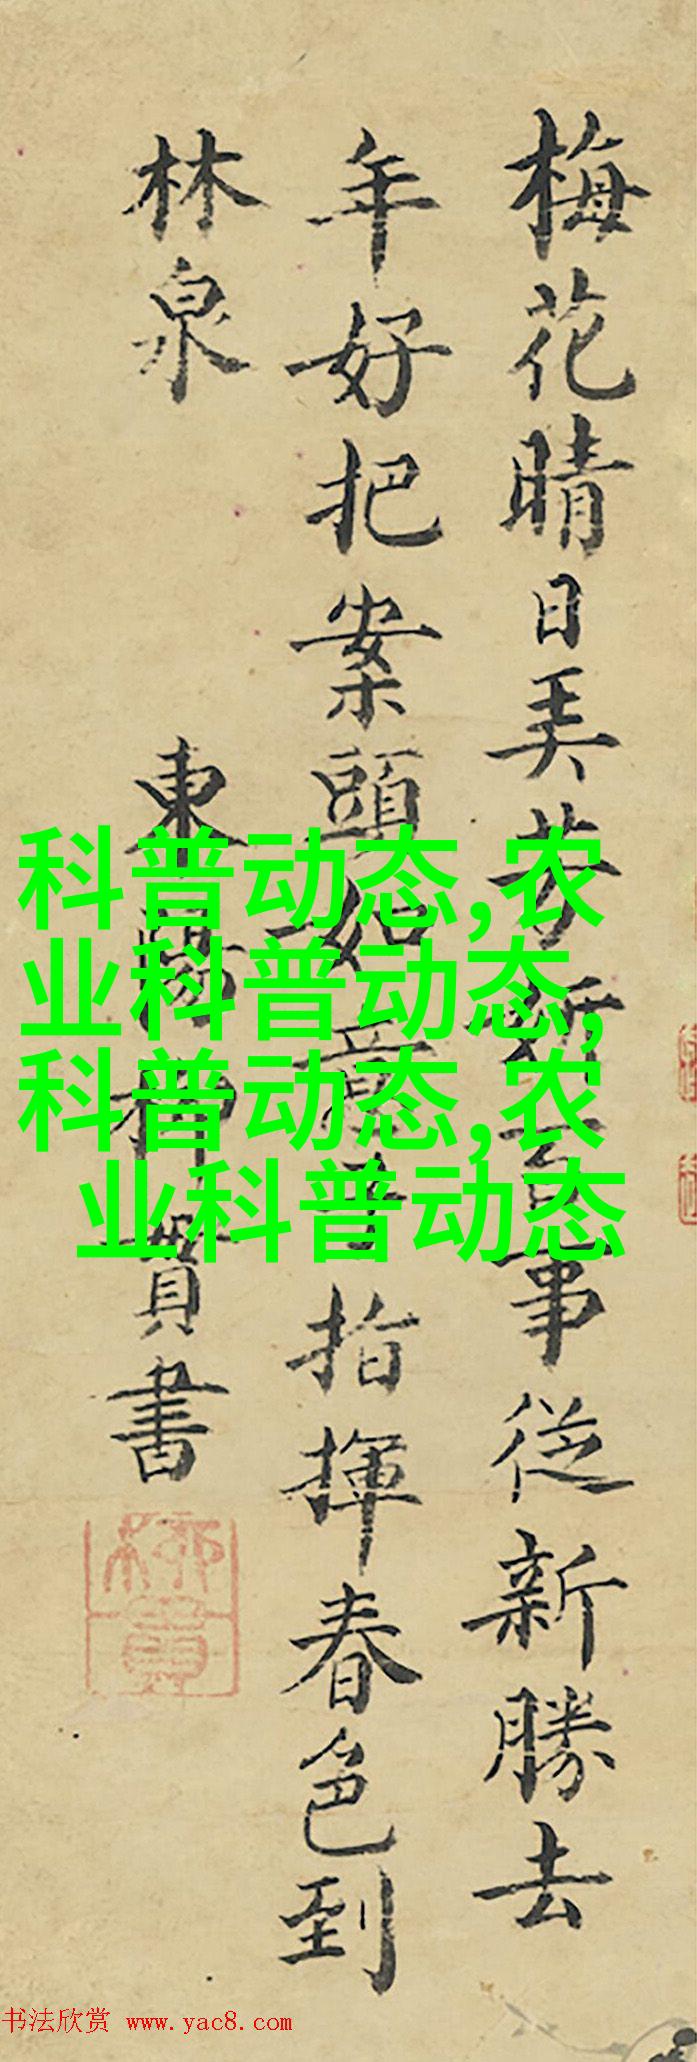 梅花晴日美芳妍百事從新勝去
年好把案頭如意手指揮春色到
林泉
東陽柳貫書
柳貫
科普动态,农
业科普动态,
科普动态,农
业科普动态
书法欣赏 www.yac8.com